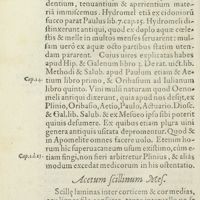 dentium, tenuantium & aperientium mate-
riam immutemus? Hydromel etiā ex cydoniorū
succo parat Paulus lib. 7. cap. 15. Hydromeli di-
stinxerant antiqui, quod ex duplo aquæ cæle-
stis & melle in multos menses seruarent: mul-
sam uerò ex aquæ octo partibus statim uten-
dam pararent. Cuius uires explicatas habes
apud Hip. & Galenum libro 3. De rat. uict. lib.
Methodi & Salub. apud Paulum etiam & Ae-
Cap. 14.
tium libro primo, & Oribasium ad Iulianum
libro quinto. Vini multi naturā quod Oeno-
meli antiqui dixerunt, quia apud nos desijt, ex
Plinio, Oribasio, Aetio, Paulo, Aduario, Diosc.
& Gal. lib. Salub. & ex Mesueo ipso sibi potent
desumere. Ex quibus etiam plura uini
genera antiquis usitata depromentur. Quod &
in Apomelite omnes facere uolo. Etenim ho-
Cap. 1. 27.
rum usum apud posteros quoq; illustrium, cùm e-
tiam fingi, non fieri arbitretur Plinius, & alias
modos excedat medicorum in his ostentatio.
Acetum scillinum Mes.
Scillę laminas inter corticem & cor medias,